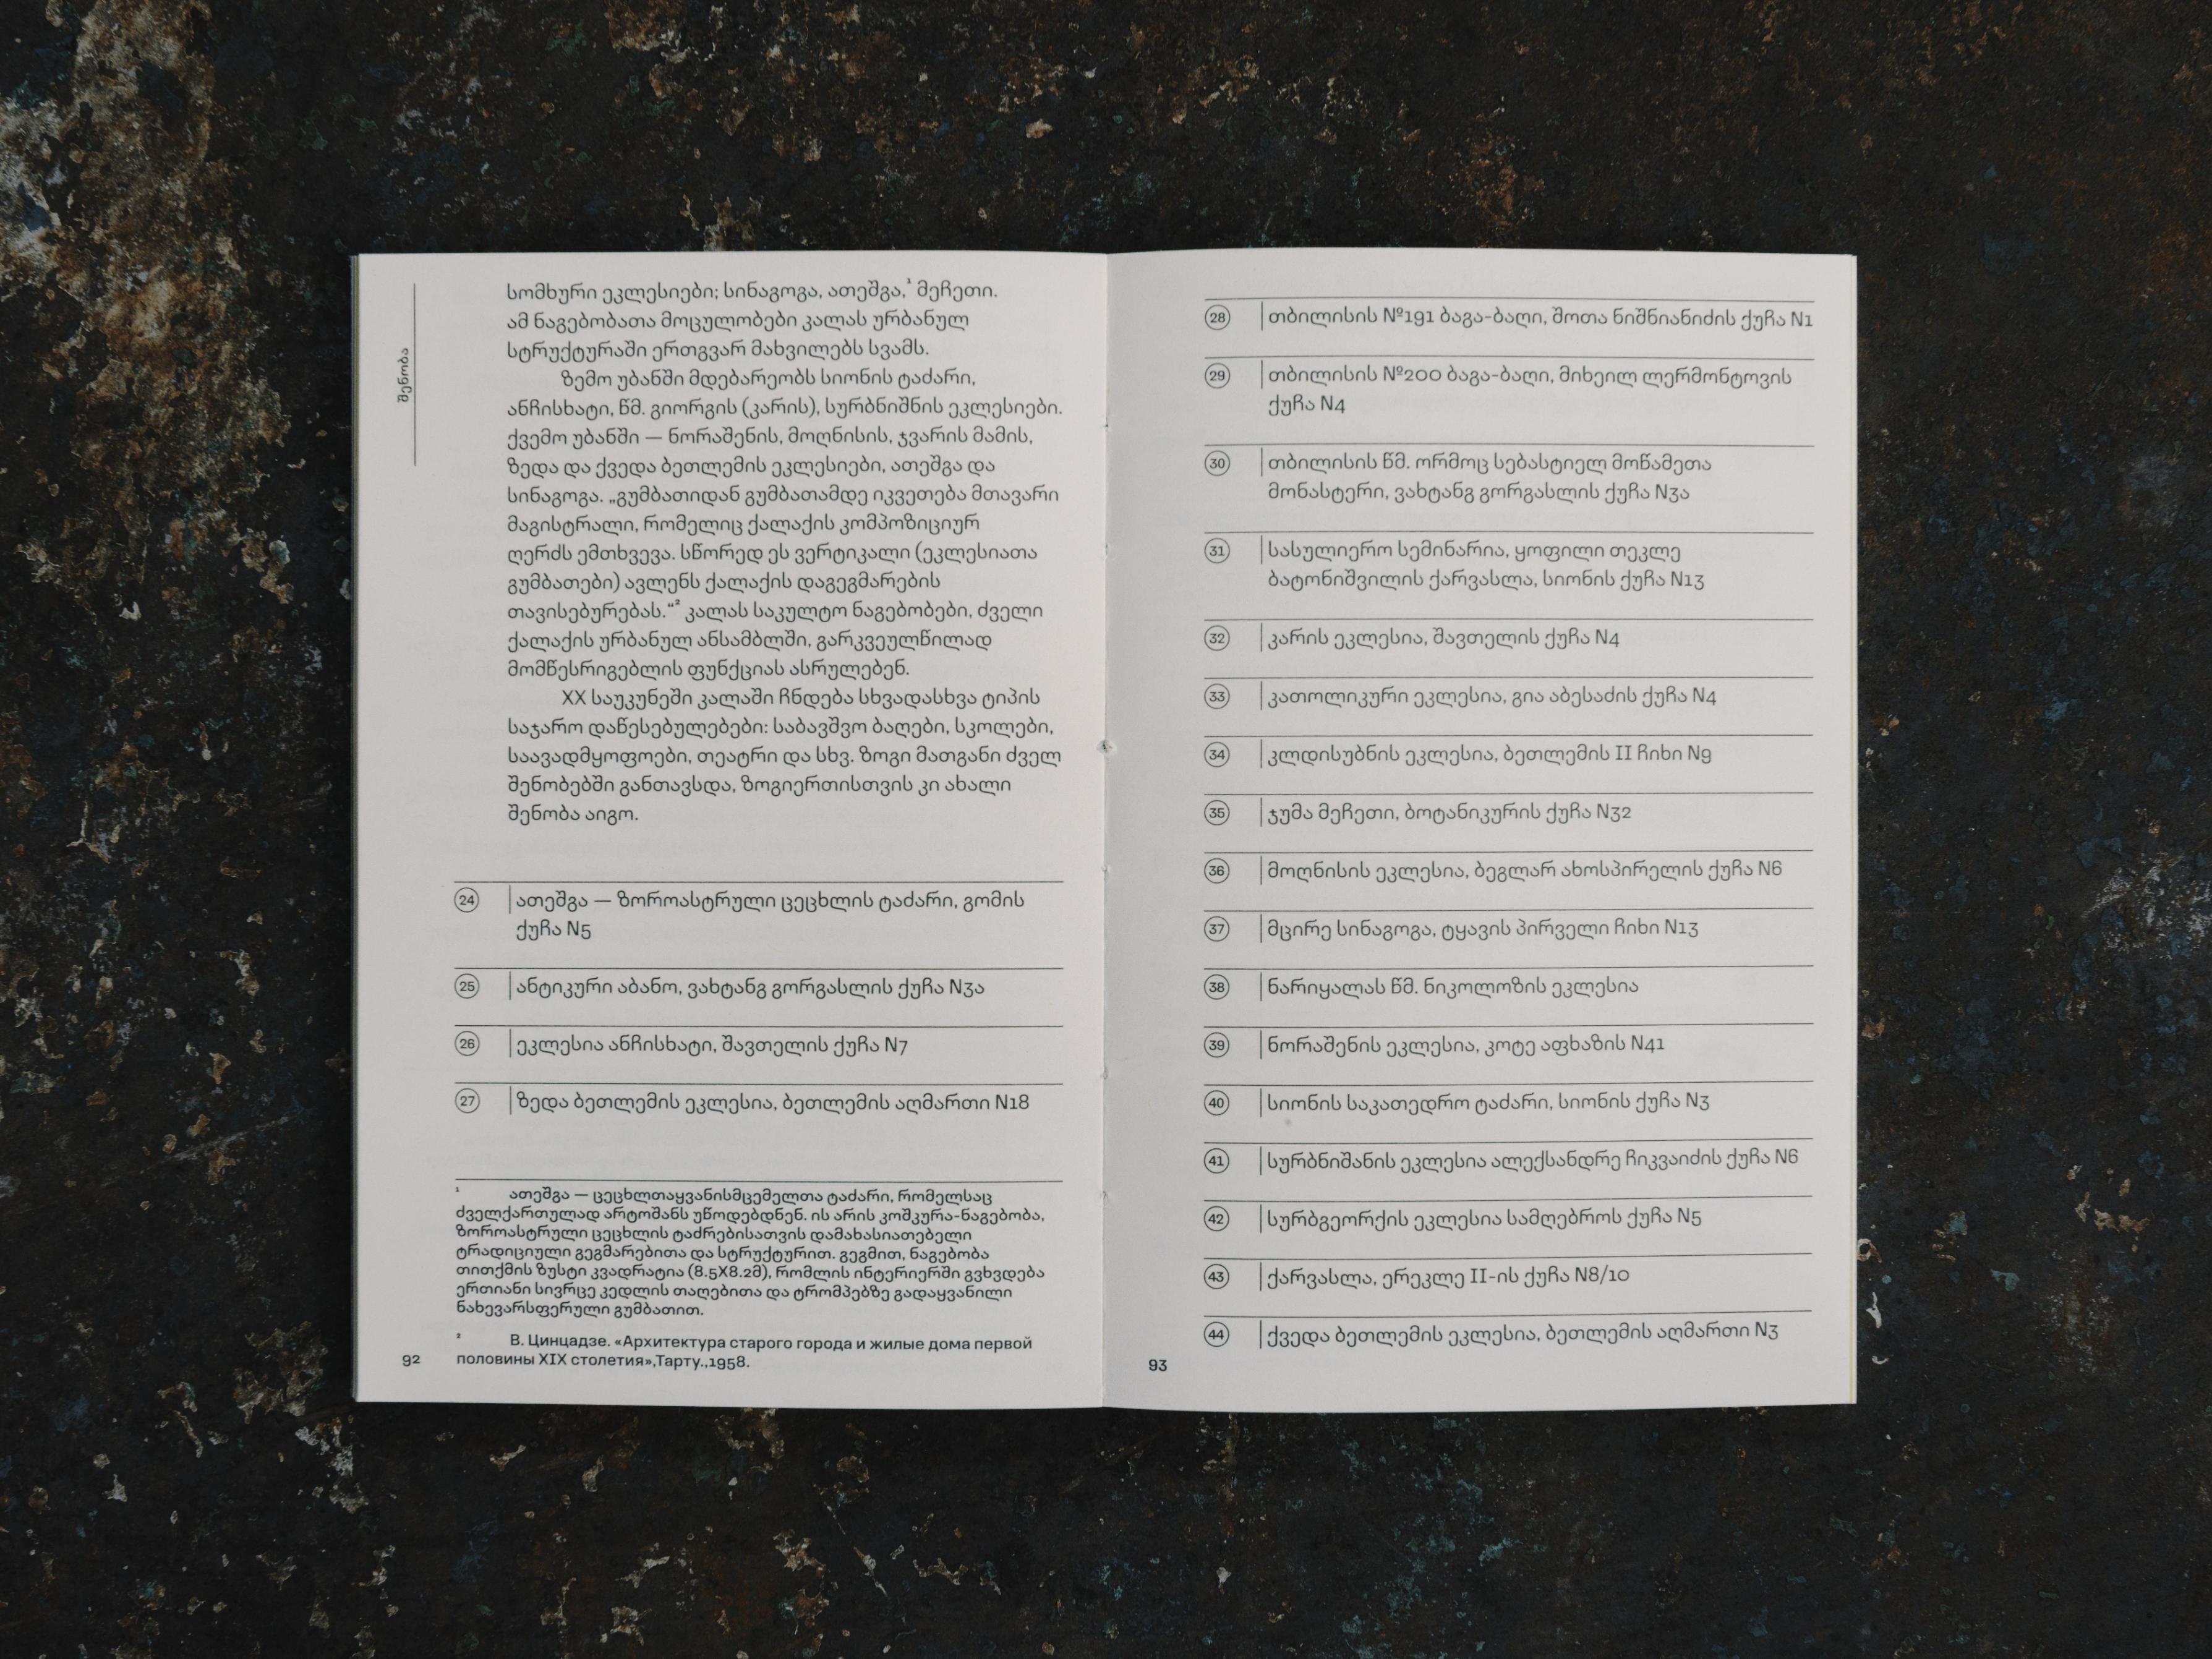 შენობა
სომხური ეკლესიები; სინაგოგა, ათეშგა,¹ მეჩეთი.
ამ ნაგებობათა მოცულობები კალას ურბანულ
სტრუქტურაში ერთგვარ მახვილებს სვამს.
ზემო უბანში მდებარეობს სიონის ტაძარი,
ანჩისხატი, წმ. გიორგის (კარის), სურბნიშნის ეკლესიები.
ქვემო უბანში — ნორაშენის, მოღნისის, ჯვარის მამის,
ზედა და ქვედა ბეთლემის ეკლესიები, ათეშგა და
სინაგოგა. „გუმბათიდან გუმბათამდე იკვეთება მთავარი
მაგისტრალი, რომელიც ქალაქის კომპოზიციურ
ღერძს ემთხვევა. სწორედ ეს ვერტიკალი (ეკლესიათა
გუმბათები) ავლენს ქალაქის დაგეგმარების
თავისებურებას.“² კალას საკულტო ნაგებობები, ძველი
ქალაქის ურბანულ ანსამბლში, გარკვეულწილად
მომწესრიგებლის ფუნქციას ასრულებენ.
XX საუკუნეში კალაში ჩნდება სხვადასხვა ტიპის
საჯარო დაწესებულებები: საბავშვო ბაღები, სკოლები,
საავადმყოფოები, თეატრი და სხვ. ზოგი მათგანი ძველ
შენობებში განთავსდა, ზოგიერთისთვის კი ახალი
შენობა აიგო.
24 ათეშგა — ზოროასტრული ცეცხლის ტაძარი, გომის
ქუჩა N5
25 ანტიკური აბანო, ვახტანგ გორგასლის ქუჩა N3ა
26 ეკლესია ანჩისხატი, შავთელის ქუჩა N7
27 ზედა ბეთლემის ეკლესია, ბეთლემის აღმართი N18
¹ ათეშგა — ცეცხლთაყვანისმცემელთა ტაძარი, რომელსაც
ძველქართულად არტოშანს უწოდებდნენ. ის არის კოშკურა-ნაგებობა,
ზოროასტრული ცეცხლის ტაძრებისათვის დამახასიათებელი
ტრადიციული გეგმარებითა და სტრუქტურით. გეგმით, ნაგებობა
თითქმის ზუსტი კვადრატია (8.5X8.2მ), რომლის ინტერიერში გვხვდება
ერთიანი სივრცე კედლის თაღებითა და ტრომპებზე გადაყვანილი
ნახევარსფერული გუმბათით.
² В. Цинцадзе. «Архитектура старого города и жилые дома первой
половины XIX столетия»,Тарту.,1958.
92
28 თბილისის №191 ბაგა-ბაღი, შოთა ნიშნიანიძის ქუჩა N1
29 თბილისის №200 ბაგა-ბაღი, მიხეილ ლერმონტოვის
ქუჩა N4
30 თბილისის წმ. ორმოც სებასტიელ მოწამეთა
მონასტერი, ვახტანგ გორგასლის ქუჩა N3ა
31 სასულიერო სემინარია, ყოფილი თეკლე
ბატონიშვილის ქარვასლა, სიონის ქუჩა N13
32 კარის ეკლესია, შავთელის ქუჩა N4
33 კათოლიკური ეკლესია, გია აბესაძის ქუჩა N4
34 კლდისუბნის ეკლესია, ბეთლემის II ჩიხი N9
35 ჯუმა მეჩეთი, ბოტანიკურის ქუჩა N32
36 მოღნისის ეკლესია, ბეგლარ ახოსპირელის ქუჩა N6
37 მცირე სინაგოგა, ტყავის პირველი ჩიხი N13
38 ნარიყალას წმ. ნიკოლოზის ეკლესია
39 ნორაშენის ეკლესია, კოტე აფხაზის N41
40 სიონის საკათედრო ტაძარი, სიონის ქუჩა N3
41 სურბნიშანის ეკლესია ალექსანდრე ჩიკვაიძის ქუჩა N6
42 სურბგეორქის ეკლესია სამღებროს ქუჩა N5
43 ქარვასლა, ერეკლე II-ის ქუჩა N8/10
44 ქვედა ბეთლემის ეკლესია, ბეთლემის აღმართი N3
93